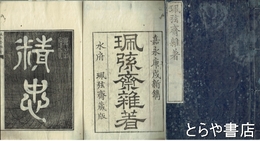 嘉永庚戌新鐫
珮弦齋雜著
水府 珮弦齋蔵版
精忠
珮弦齋雜著
とらや書店